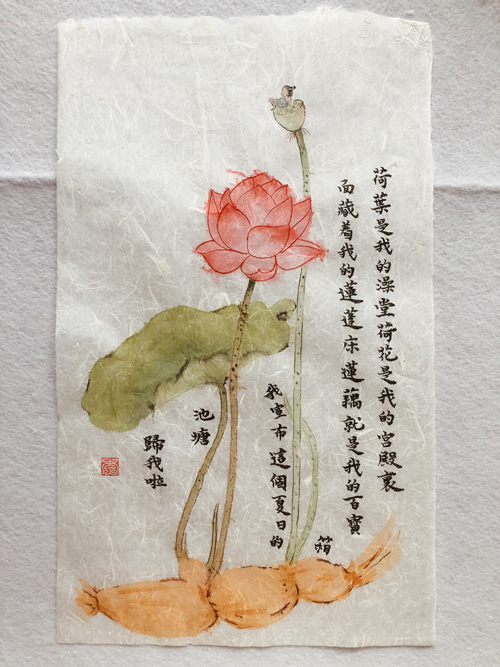 荷葉是我的澡堂荷花是我的宮殿裏
面藏着我的蓮蓬床蓮藕就是我的百寶
箱
我宣布這個夏日的
池塘
歸我啦